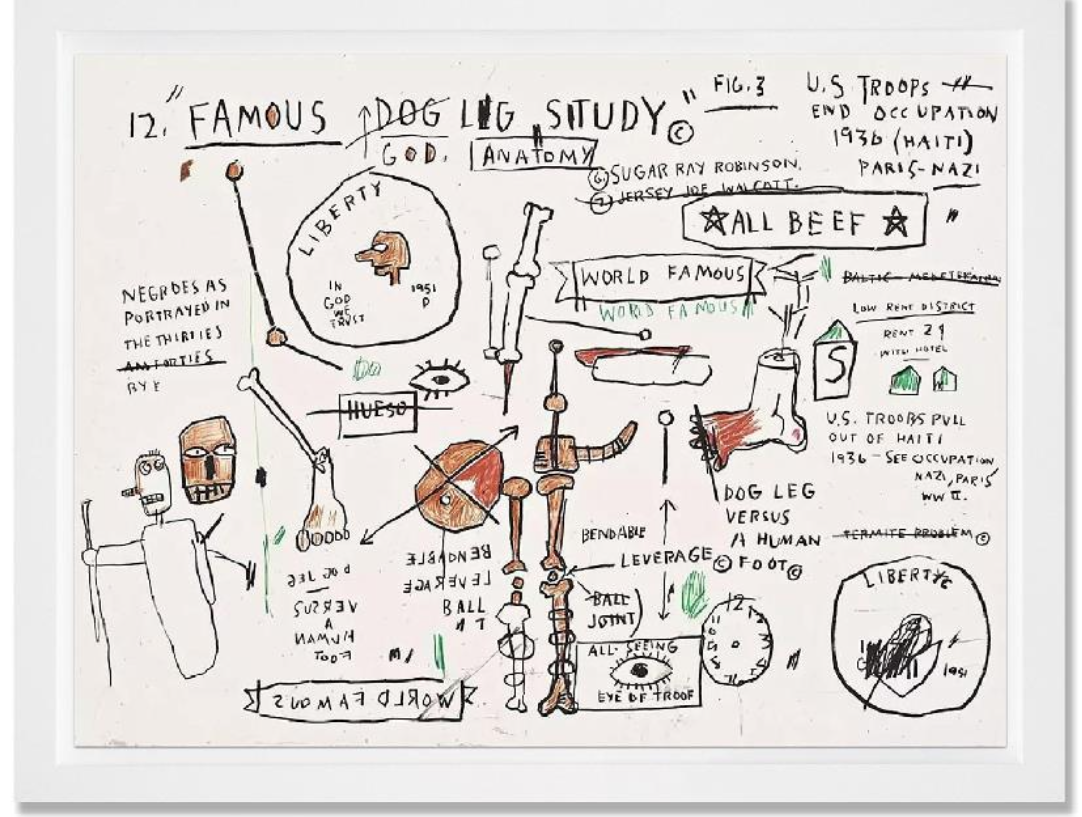 12. "FAMOUS DOG LEG STUDY" ©
GOD. ANATOMY
FIG. 3
U.S TROOPS
END OCCUPATION
1936 (HAITI)
PARIS-NAZI
"
6 SUGAR RAY ROBINSON.
7 JERSEY JOE WALCOTT.
☆ALL BEEF☆
LIBERTY
IN
GOD
WE
TRUST
1951
D
NEGROES AS
PORTRAYED IN
THE THIRTIES
AN FORTIES
BY
WORLD FAMOUS
WORLD FAMOUS
LOW RENT DISTRICT
RENT 2
WITH HOTEL
S
HUESO
U.S. TROOPS PULL
OUT OF HAITI
1936 - SEE OCCUPATION
NAZI, PARIS
WW II.
TERMITE PROBLEM ©
DOG LEG
VERSUS
A HUMAN
© FOOT ©
BENDABLE
LEVERAGE
BALL
JOINT
BENDABLE
LEVERAGE
BALL
DOG LEG
VERSUS
A
HUMAN
FOOT
ALL-SEEING
EYE OF TROOF
12
LIBERTY
1951
WORLD FAMOUS